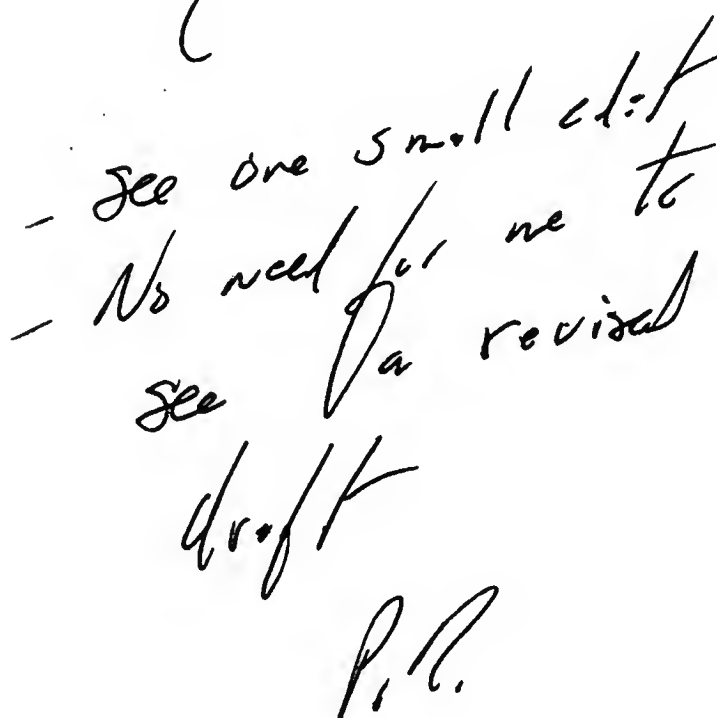 - See one small edit
- No need for me to
see a revised
draft
P.R.